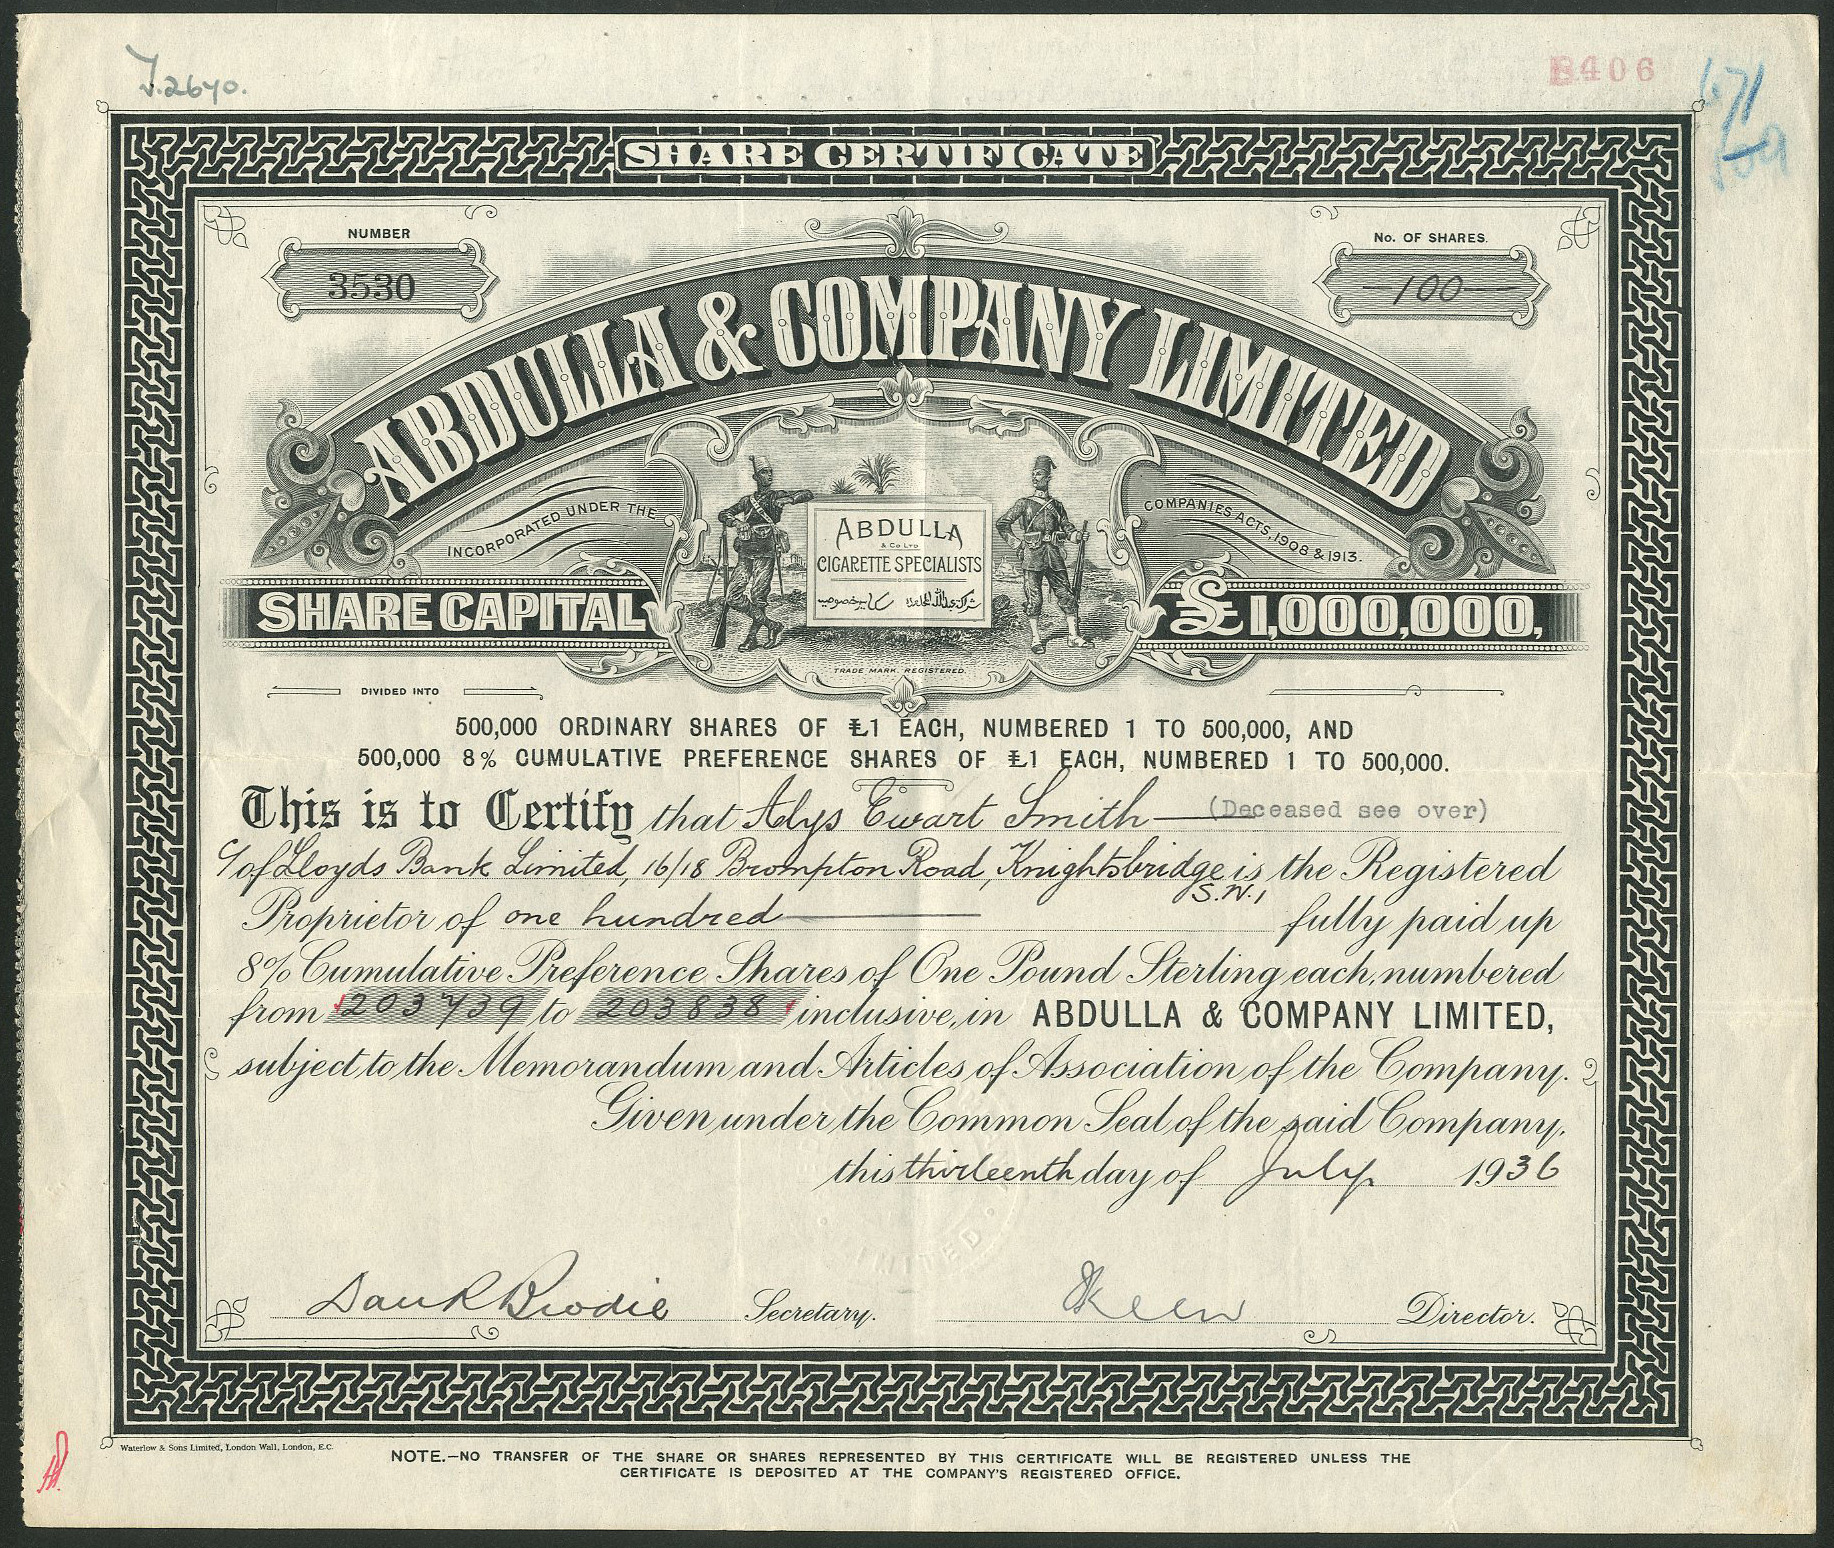 J.2640.
B406
SHARE CERTIFICATE
NUMBER
3530
No. OF SHARES.
100
ABDULLA & COMPANY LIMITED
INCORPORATED UNDER THE COMPANIES ACTS, 1908 & 1913.
ABDULLA
& Co LTD
CIGARETTE SPECIALISTS
SHARE CAPITAL £1,000,000,
TRADE MARK REGISTERED.
DIVIDED INTO
500,000 ORDINARY SHARES OF £1 EACH, NUMBERED 1 TO 500,000, AND
500,000 8% CUMULATIVE PREFERENCE SHARES OF £1 EACH, NUMBERED 1 TO 500,000.
This is to Certify that Alys Ewart Smith (Deceased see over)
c/o of Lloyds Bank Limited, 16/18 Brompton Road, Knightsbridge is the Registered
S.W.1
Proprietor of one hundred fully paid up
8% Cumulative Preference Shares of One Pound Sterling each, numbered
from 203739 to 203838 inclusive, in ABDULLA & COMPANY LIMITED,
subject to the Memorandum and Articles of Association of the Company.
Given under the Common Seal of the said Company,
this thirteenth day of July 1936
LIMITED
Secretary.
Keen Director.
Waterlow & Sons Limited, London Wall, London, E.C.
NOTE.—NO TRANSFER OF THE SHARE OR SHARES REPRESENTED BY THIS CERTIFICATE WILL BE REGISTERED UNLESS THE
CERTIFICATE IS DEPOSITED AT THE COMPANY'S REGISTERED OFFICE.